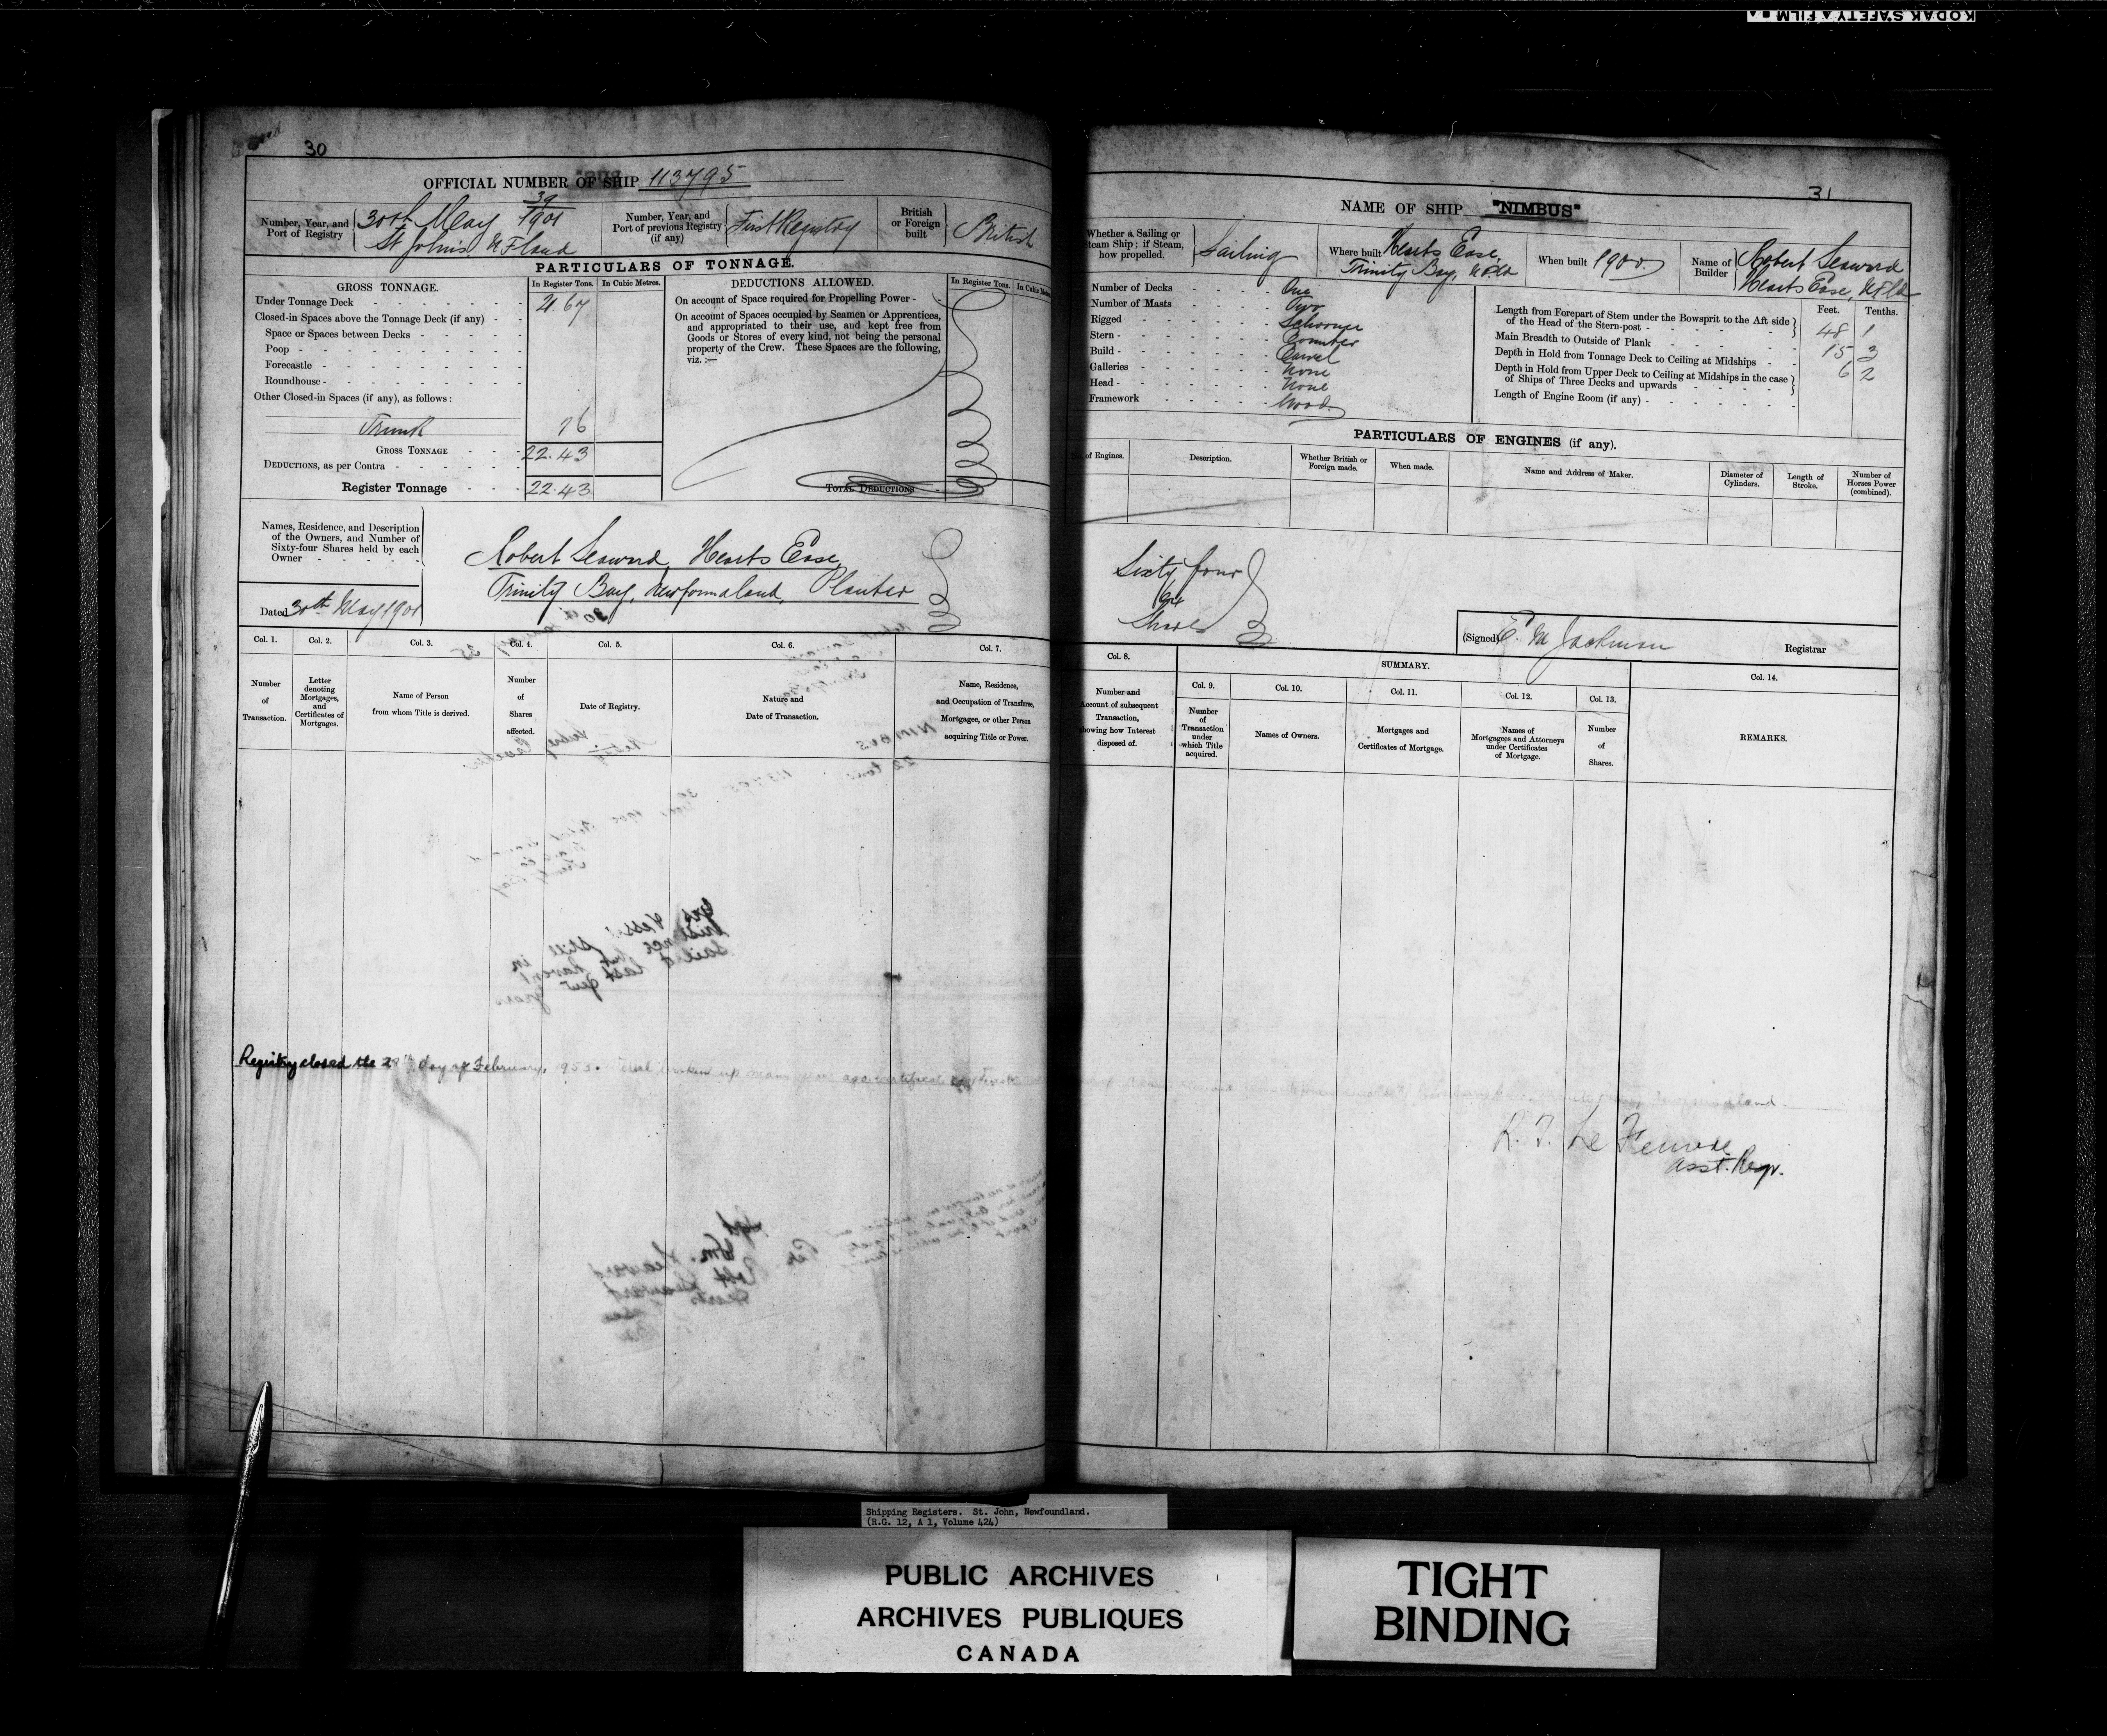 KODAK SAFETY FILM
30
OFFICIAL NUMBER OF SHIP 113795
Number, Year, and Port of Registry
30th May 39/1901
St John's N.F.land
Number, Year, and Port of previous Registry (if any)
First Registry
British or Foreign built
British
PARTICULARS OF TONNAGE.
GROSS TONNAGE.
In Register Tons.
In Cubic Metres.
Under Tonnage Deck 21.67
Closed-in Spaces above the Tonnage Deck (if any)
Space or Spaces between Decks
Poop
Forecastle
Roundhouse
Other Closed-in Spaces (if any), as follows:
Trunk 76
GROSS TONNAGE 22.43
DEDUCTIONS, as per Contra
Register Tonnage 22.43
DEDUCTIONS ALLOWED.
In Register Tons.
On account of Space required for Propelling Power
On account of Spaces occupied by Seamen or Apprentices,
and appropriated to their use, and kept free from
Goods or Stores of every kind, not being the personal
property of the Crew. These Spaces are the following,
viz.:—
TOTAL DEDUCTIONS
Names, Residence, and Description
of the Owners, and Number of
Sixty-four Shares held by each
Owner
Robert Seaward, Hearts Ease,
Trinity Bay, Newfoundland, Planter
Dated 30th May 1901
Col. 1.
Number of Transaction.
Col. 2.
Letter denoting Mortgages, and Certificates of Mortgages.
Col. 3.
Name of Person from whom Title is derived.
Col. 4.
Number of Shares affected.
Col. 5.
Date of Registry.
Col. 6.
Nature and Date of Transaction.
Col. 7.
Name, Residence, and Occupation of Transferee, Mortgagee, or other Person acquiring Title or Power.
Registry closed the 28th day of February, 1953.
31
NAME OF SHIP "NIMBUS"
Whether a Sailing or Steam Ship; if Steam, how propelled.
Sailing
Where built
Hearts Ease,
Trinity Bay, Nfld
When built 1900
Name of Builder
Robert Seaward
Hearts Ease, Nfld
Number of Decks One
Number of Masts Two
Rigged Schooner
Stern Counter
Build Carvel
Galleries None
Head None
Framework Wood
Feet. Tenths.
Length from Forepart of Stem under the Bowsprit to the Aft side
of the Head of the Stern-post 48 1
Main Breadth to Outside of Plank 15 3
Depth in Hold from Tonnage Deck to Ceiling at Midships 6 2
Depth in Hold from Upper Deck to Ceiling at Midships in the case
of Ships of Three Decks and upwards
Length of Engine Room (if any)
PARTICULARS OF ENGINES (if any).
of Engines.
Description.
Whether British or Foreign made.
When made.
Name and Address of Maker.
Diameter of Cylinders.
Length of Stroke.
Number of Horses Power (combined).
Sixty four
64
Shares
(Signed) E. M Jackman Registrar
Col. 8.
Number and Account of subsequent Transaction, showing how Interest disposed of.
SUMMARY.
Col. 9.
Number of Transaction under which Title acquired.
Col. 10.
Names of Owners.
Col. 11.
Mortgages and Certificates of Mortgage.
Col. 12.
Names of Mortgagees and Attorneys under Certificates of Mortgage.
Col. 13.
Number of Shares.
Col. 14.
REMARKS.
Asst. Regr.
Shipping Registers. St. John, Newfoundland.
(R.G. 12, A 1, Volume 424)
PUBLIC ARCHIVES
ARCHIVES PUBLIQUES
CANADA
TIGHT
BINDING